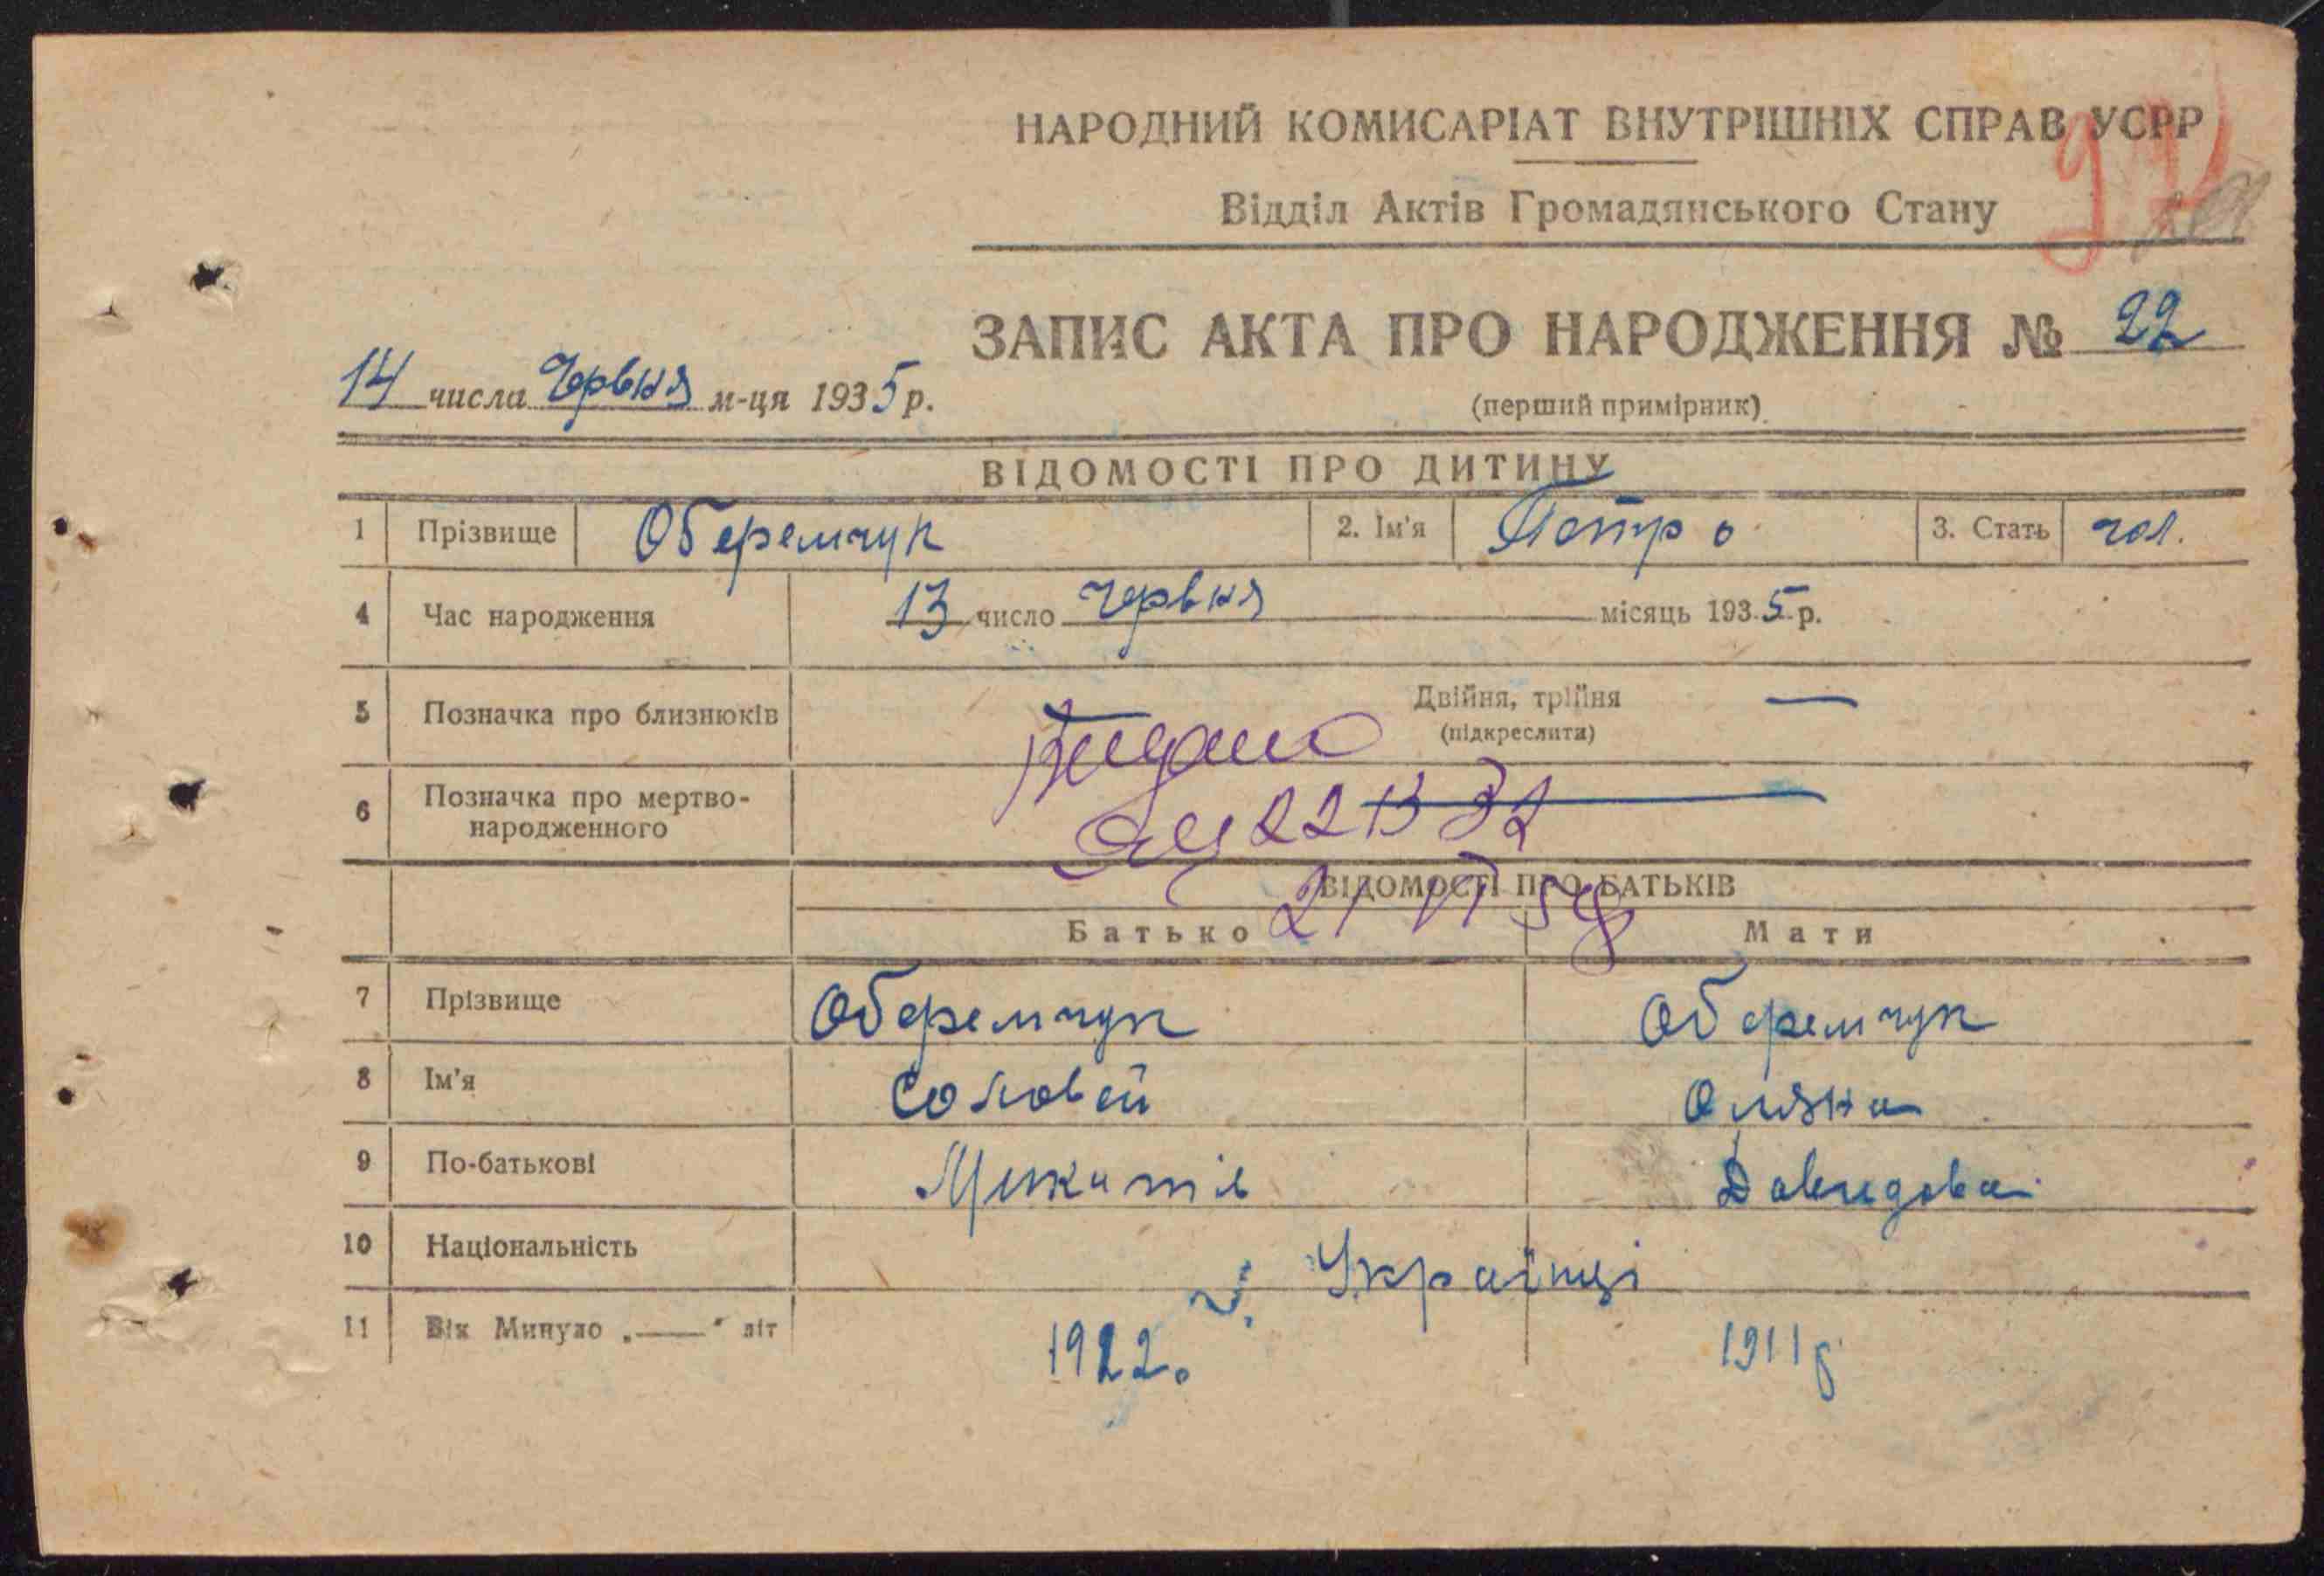 НАРОДНИЙ КОМИСАРІАТ ВНУТРІШНІХ СПРАВ УСРР
Відділ Актів Громадянського Стану
ЗАПИС АКТА ПРО НАРОДЖЕННЯ № 22
14 числа Червня м-ця 1935 р.
(перший примірник)
ВІДОМОСТІ ПРО ДИТИНУ
1 Прізвище Оберемчук 2. Ім'я Петро 3. Стать чол.
4 Час народження 13 число Червня місяць 1935 р.
5 Позначка про близнюків Двійня, трійня —
(підкреслити)
Видано
6 Позначка про мертво-
народженного
21 VI 58
ВІДОМОСТІ ПРО БАТЬКІВ
Батько Мати
7 Прізвище Оберемчук Оберемчук
8 Ім'я Соловей Оляна
9 По-батькові Микитів Давидова
10 Національність Українці
11 Вік Минуло „——" літ 1911р